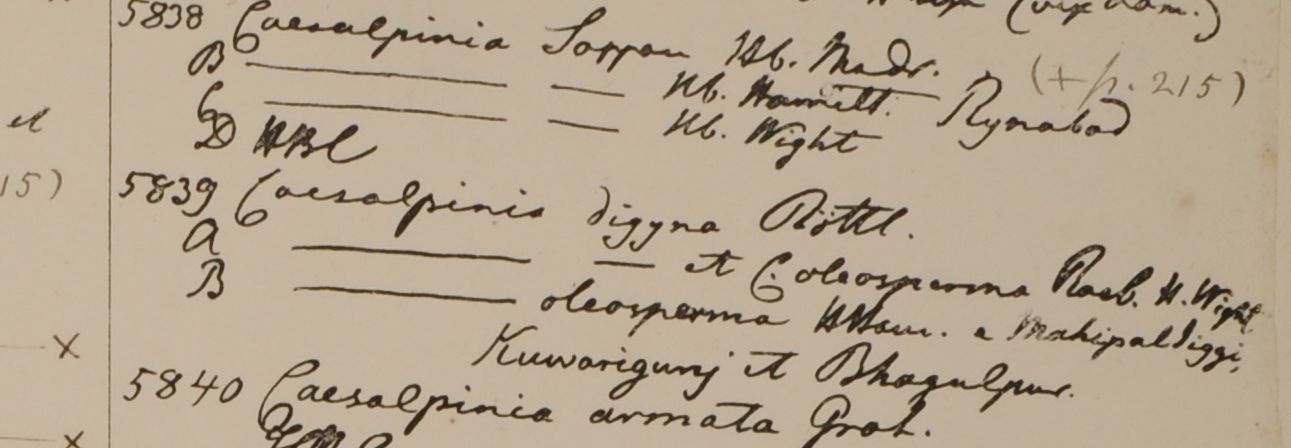 (vix dom.)
5838 Caesalpinia Sappan Hb. Madr.
B ——— — Hb. Hamilt. Rynabad (+ p. 215)
C ——— — Hb. Wight
D HBC
et
15)
5839 Caesalpinia digyna Rottl.
A ——— — et C. oleosperma Roxb. H. Wight
B ——— oleosperma HHam. e Mahipaldiggi,
Kuwarigunj et Bhagulpur.
x
5840 Caesalpinia armata Grah.
x